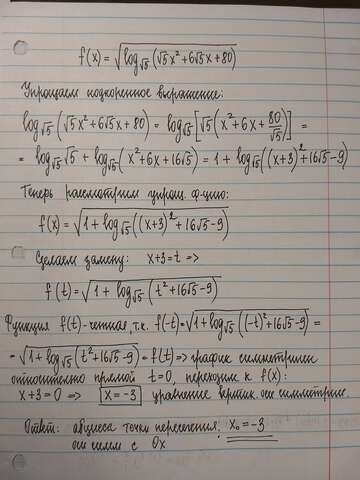 f(x) = √(log_√5 (√5x² + 6√5x + 80))
Упрощаем подкоренное выражение:
log_√5 (√5x² + 6√5x + 80) = log_√5 [√5 (x² + 6x + 80/√5)] =
= log_√5 √5 + log_√5 (x² + 6x + 16√5) = 1 + log_√5 ((x+3)² + 16√5 - 9)
Теперь рассмотрим упрощ. ф-цию:
f(x) = √(1 + log_√5 ((x+3)² + 16√5 - 9))
Сделаем замену: x+3 = t =>
f(t) = √(1 + log_√5 (t² + 16√5 - 9))
Функция f(t) - четная, т.к. f(-t) = √(1 + log_√5 ((-t)² + 16√5 - 9)) =
= √(1 + log_√5 (t² + 16√5 - 9)) = f(t) => график симметричен
относительно прямой t=0, переходим к f(x):
x+3=0 => x=-3 уравнение вертик. оси симметрии.
Ответ: абсцисса точки пересечения: x₀ = -3
оси симм с Ox